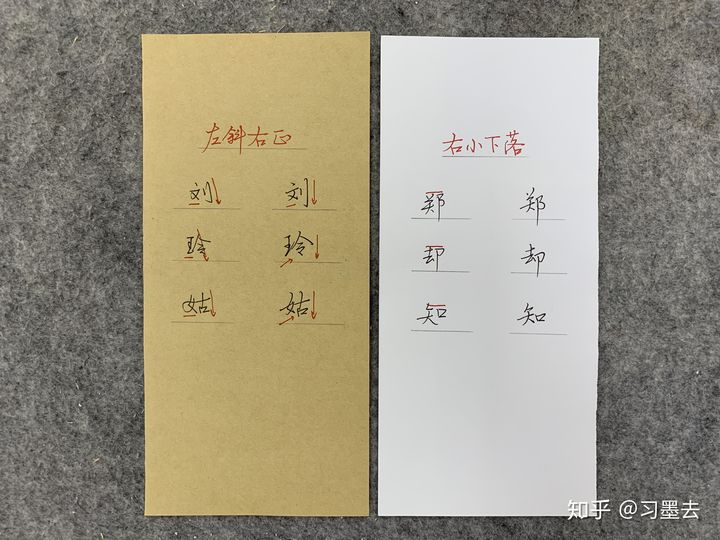 左斜右正
刘 刘
玲 玲
姑 姑
右小下落
郑 郑
却 却
知 知
知乎 @习墨去